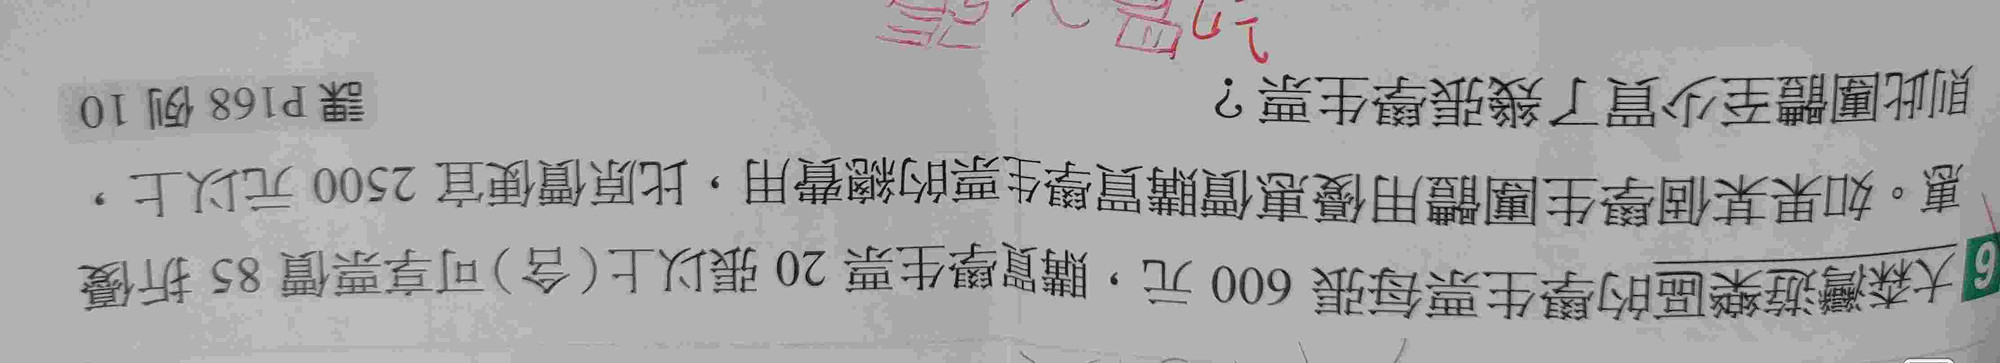 6 大森灣遊樂區的學生票每張 600 元，購買學生票 20 張以上（含）可享票價 85 折優
惠。如果某個學生團體用優惠價購買學生票的總費用，比原價便宜 2500 元以上，
則此團體至少買了幾張學生票？ 課 P168 例 10